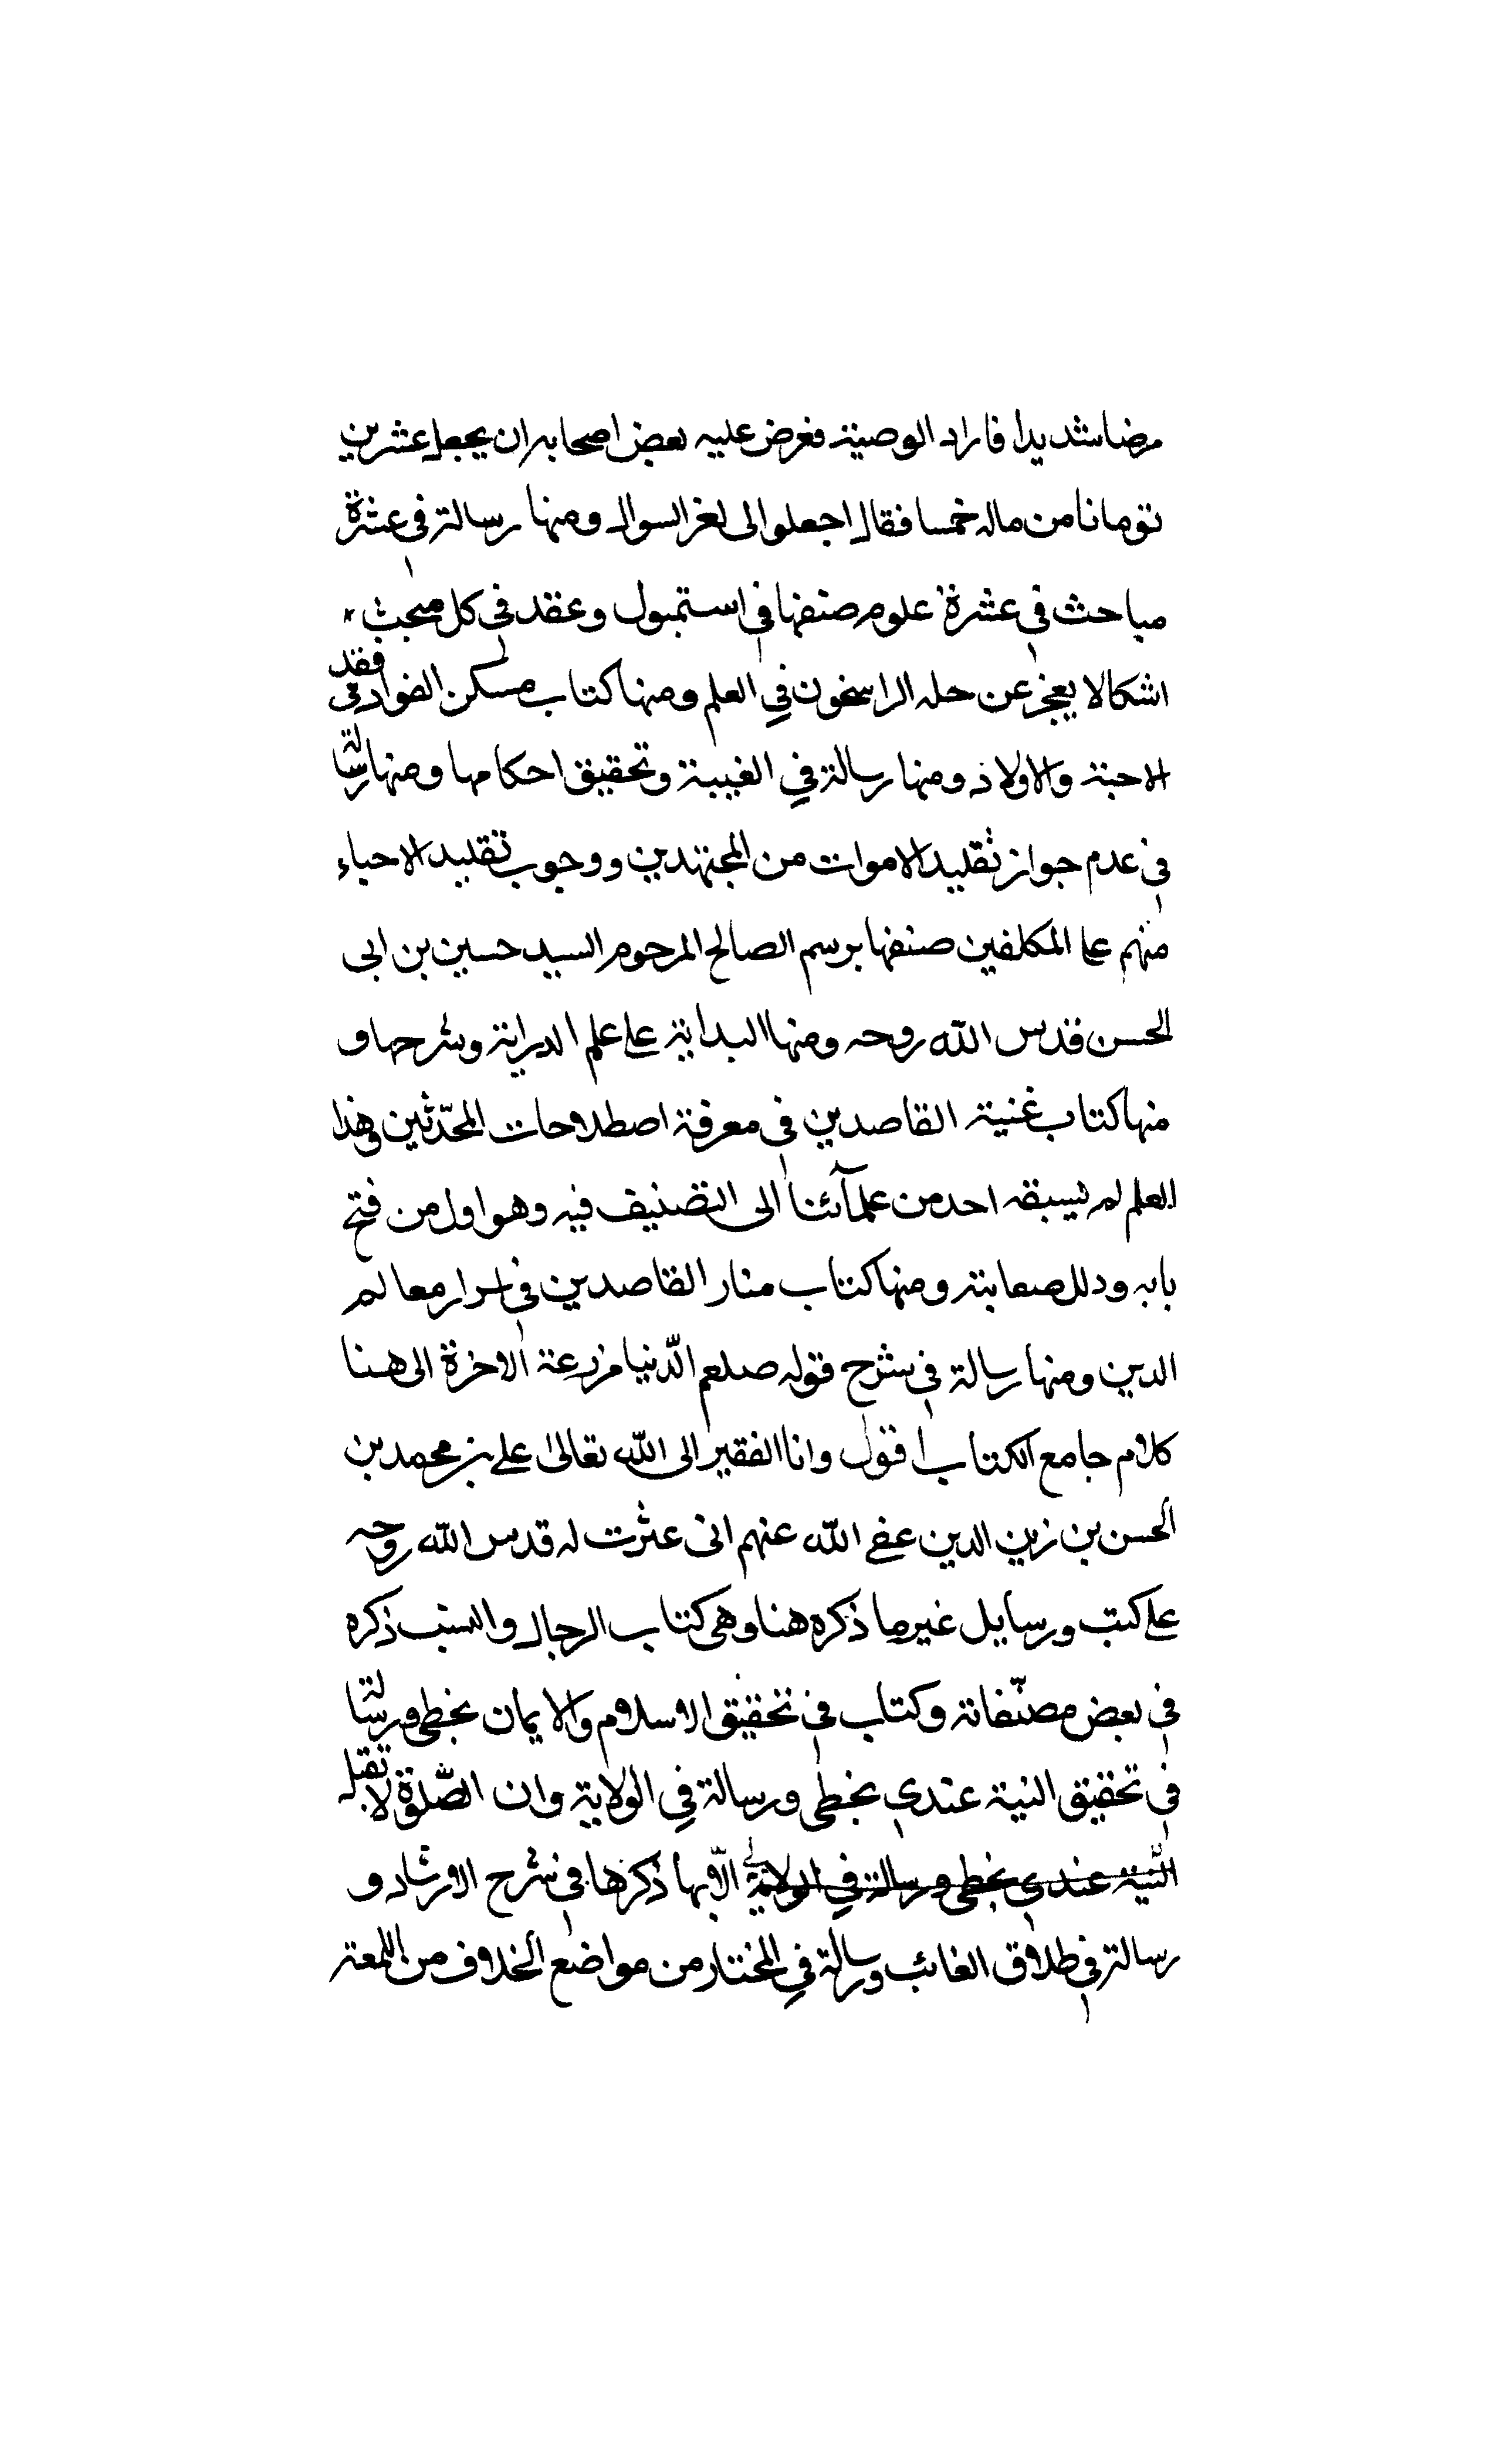 مرضا شديدا فاراد الوصية فعرض عليه بعض اصحابه ان يجعل عشرين
تومانا من ماله خمسا فقال اجعلوا الى لغز السوال ومنها رسالة في عشرة
مباحث في عشرة علوم صنفها في استمبول وعقد في كل مبحث
اشكالا يعجز عن حله الراسخون في العلم ومنها كتاب مسكن الفواد في فقد
الاحبة والاولاد ومنها رسالة في الغيبة وتحقيق احكامها ومنها رسالة
في عدم جواز تقليد الاموات من المجتهدين ووجوب تقليد الاحياء
منهم على المكلفين صنفها برسم الصالح المرحوم السيد حسين بن ابى
الحسن قدس الله روحه ومنها البداية على علم الدراية وشرحها و
منها كتاب غنية القاصدين في معرفة اصطلاحات المحدّثين وهذا
العلم لم يسبقه احد من علمآئنا الى التصنيف فيه وهو اول من فتح
بابه وذلل صعابته ومنها كتاب منار القاصدين في اسرار معالم
الدين ومنها رسالة في شرح قوله صلعم الدّنيا مزرعة الاخرة الى هنا
كلام جامع الكتاب اقول وانا الفقير الى الله تعالى على بن محمد بن
الحسن بن زين الدين عفى الله عنهم انى عثرت له قدس الله روحه
على كتب ورسايل غير ما ذكره هنا وهى كتاب الرجال والنسب ذكره
في بعض مصنّفاته وكتاب في تحقيق الاسلام والايمان بخطى ورسالة
في تحقيق النية عندى بخطى ورسالة في الولاية وان الصّلوة لا تقبل
النّية عندى بخطى ورسالة في الولاية الّا بها ذكرها في شرح الارشاد و
رسالة في طلاق الغائب ورسالة في المختار من مواضع الخلاف من اللمعة